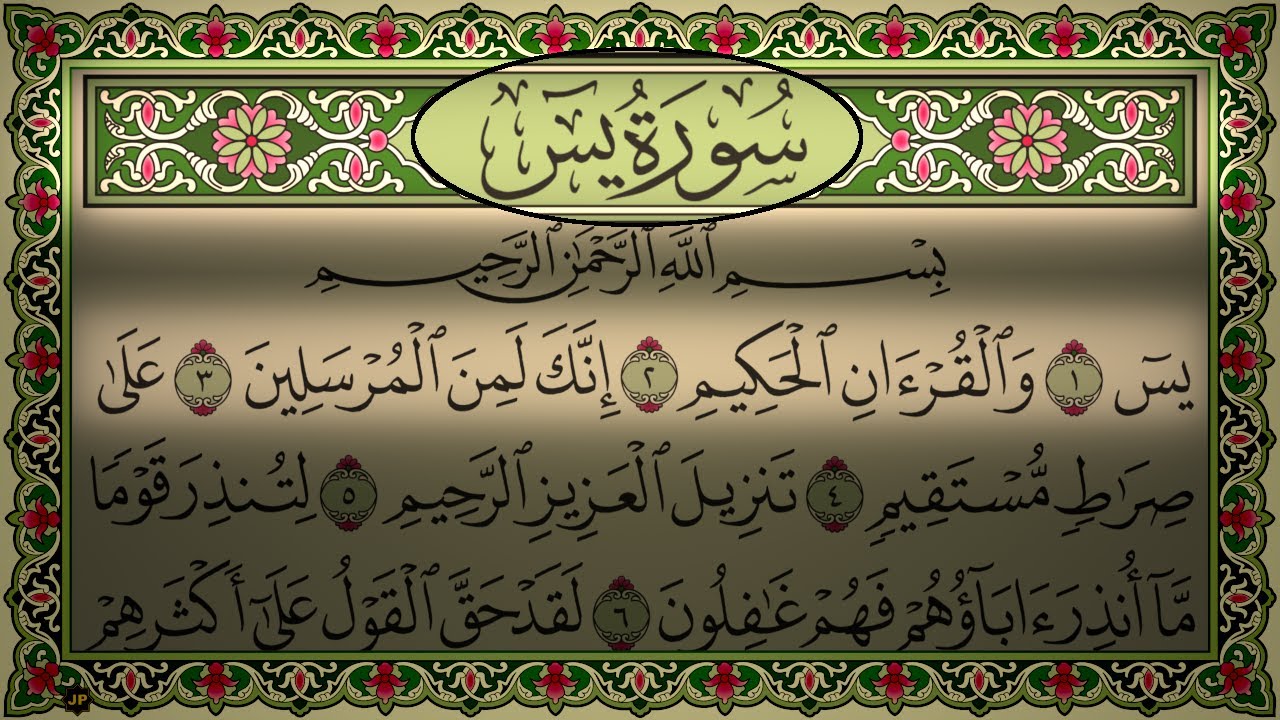 سُورَةُ يسٓ
بِسْمِ ٱللَّهِ ٱلرَّحْمَٰنِ ٱلرَّحِيمِ
يسٓ ١ وَٱلْقُرْءَانِ ٱلْحَكِيمِ ٢ إِنَّكَ لَمِنَ ٱلْمُرْسَلِينَ ٣ عَلَىٰ
صِرَٰطٍ مُّسْتَقِيمٍ ٤ تَنزِيلَ ٱلْعَزِيزِ ٱلرَّحِيمِ ٥ لِتُنذِرَ قَوْمًا
مَّآ أُنذِرَ ءَابَآؤُهُمْ فَهُمْ غَٰفِلُونَ ٦ لَقَدْ حَقَّ ٱلْقَوْلُ عَلَىٰٓ أَكْثَرِهِمْ
JP